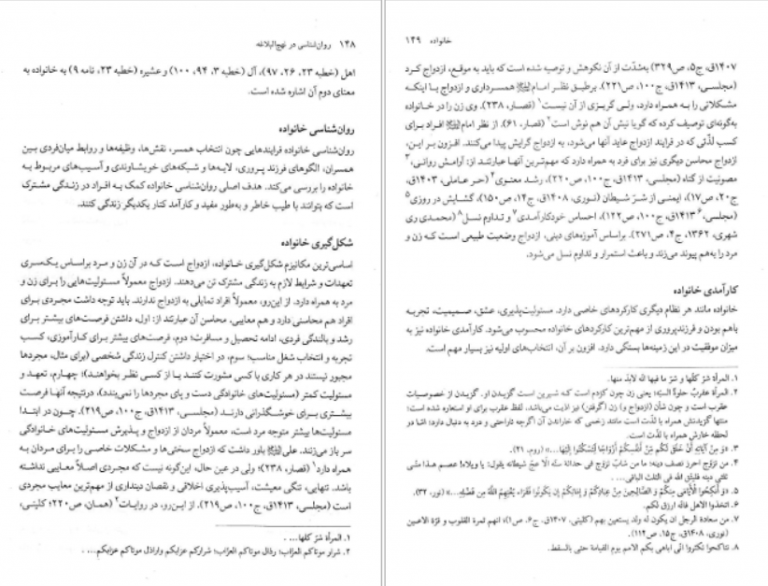 ۱۴۸ روان‌شناسی در نهج‌البلاغه
اهل (خطبه ۲۳، ۲۶، ۹۷)، آل (خطبه ۳، ۹۴، ۱۰۰) و عشیره (خطبه ۲۳، نامه ۹) به خانواده به
معنای دوم آن اشاره شده است.
روان‌شناسی خانواده
روان‌شناسی خانواده فرایندهایی چون انتخاب همسر، نقش‌ها، وظیفه‌ها و روابط میان‌فردی بین
همسران، الگوهای فرزند پروری، لایه‌ها و شبکه‌های خویشاوندی و آسیب‌های مربوط به
خانواده را بررسی می‌کند. هدف اصلی روان‌شناسی خانواده کمک به افراد در زندگی مشترک
است که بتوانند با طیب خاطر و به‌طور مفید و کارآمد کنار یکدیگر زندگی کنند.
شکل‌گیری خانواده
اساسی‌ترین مکانیزم شکل‌گیری خانواده، ازدواج است که در آن زن و مرد براساس یک‌سری
تعهدات و شرایط لازم به زندگی مشترک تن می‌دهند. ازدواج معمولاً مسئولیت‌هایی را برای زن و
مرد به همراه دارد. از این‌رو، معمولاً افراد تمایلی به ازدواج ندارند. باید توجه داشت مجردی برای
افراد هم محاسنی دارد و هم معایبی. محاسن آن عبارتند از: اول، داشتن فرصت‌های بیشتر برای
رشد و بالندگی فردی، ادامه تحصیل و مسافرت؛ دوم، فرصت‌های بیشتر برای کارآموزی، کسب
تجربه و انتخاب شغل مناسب؛ سوم، در اختیار داشتن کنترل زندگی شخصی (برای مثال، مجردها
مجبور نیستند در هر کاری با کسی مشورت کنند یا از کسی نظر بخواهند)؛ چهارم، تعهد و
مسئولیت کمتر (مسئولیت‌های خانوادگی دست و پای مجردها را نمی‌بندد)، درنتیجه آنها فرصت
بیشتری برای خوشگذرانی دارند (مجلسی، ۱۴۱۳ق، ج۱۰۰، ص۲۱۹). چون در ابتدا
مسئولیت‌ها بیشتر متوجه مرد است، معمولاً مردان از ازدواج و پذیرش مسئولیت‌های خانوادگی
سر باز می‌زنند. علی باور داشت که ازدواج سختی‌ها و مشکلات خاصی را برای مردان به
همراه دارد۱ (قصار، ۲۳۸)؛ ولی در عین حال، این‌گونه نیست که مجردی اصلاً معایبی نداشته
باشد. تنهایی، تنگی معیشت، آسیب‌پذیری اخلاقی و نقصان دینداری از مهم‌ترین معایب مجردی
است (مجلسی، ۱۴۱۳ق، ج۱۰۰، ص۲۱۹). از این‌رو، در روایات۲ (همان، ص۲۲۰؛ کلینی،
۱. المرأة شرّ کلها، ... .
۲. شرار موتاکم العزّاب؛ رذال موتاکم العزّاب؛ شرارکم عزابکم واراذل موتاکم عزابکم... .
خانواده ۱۴۹
۱۴۰۷ق، ج۵، ص۳۲۹) به‌شدّت از آن نکوهش و توصیه شده است که باید به موقع، ازدواج کرد
(مجلسی، ۱۴۱۳ق، ج۱۰۰، ص۲۲۱). برطبق نظر امام همسرداری و ازدواج با اینکه
مشکلاتی را به همراه دارد، ولی گریزی از آن نیست۱ (قصار، ۲۳۸). وی زن را در خانواده
به‌گونه‌ای توصیف کرده که گویا نیش آن هم نوش است۲ (قصار، ۶۱). از نظر امام افراد برای
کسب لذّتی که در فرایند ازدواج عاید آنها می‌شود، به ازدواج گرایش پیدا می‌کنند. افزون بر این،
ازدواج محاسن دیگری نیز برای فرد به همراه دارد که مهم‌ترین آنها عبارتند از: آرامش روانی،۳
مصونیت از گناه (مجلسی، ۱۴۱۳ق، ج۱۰۰، ص۲۲۰)، رشد معنوی۴ (حر عاملی، ۱۴۰۳ق،
ج۲۰، ص۱۷)، ایمنی از شرّ شیطان (نوری، ۱۴۰۸ق، ج۱۴، ص۱۵۰)، گشایش در روزی۵
(مجلسی،۶ ۱۴۱۳ق، ج۱۰۰، ص۱۲۲)، احساس خودکارآمدی۷ و تداوم نسل۸ (محمدی ری
شهری، ۱۳۶۲، ج۴، ص۲۷۱). براساس آموزه‌های دینی، ازدواج وضعیت طبیعی است که زن و
مرد را به‌هم پیوند می‌زند و باعث استمرار و تداوم نسل می‌شود.
کارآمدی خانواده
خانواده مانند هر نظام دیگری کارکردهای خاصی دارد. مسئولیت‌پذیری، عشق، صمیمیت، تجربه
باهم بودن و فرزندپروری از مهم‌ترین کارکردهای خانواده محسوب می‌شود. کارآمدی خانواده نیز به
میزان موفقیت در این زمینه‌ها بستگی دارد. افزون بر آن، انتخاب‌های اولیه نیز بسیار مهم است.
۱. المرأة شرّ کلّها و شرّ ما فیها انّه لابدّ منها.
۲. المرأة عقربٌ حلوةُ السبّة؛ یعنی زن چون کژدم است کـه شیـرین است گـزیـدن او. گزیـدن از خصوصیات
عقرب است و چون شأن (ازدواج و) زن (گرفتن) نیز اذیت می‌باشد، لفظ عقرب برای او استعاره شده است؛
منتها گزیدنش همراه با لذّت است مانند زخمی که خاراندن آن اگرچه ناراحتی و درد به دنبال دارد؛ امّا در
لحظه خارش همراه با لذّت است.
۳. «وَ مِنْ آیَاتِهِ أَنْ خَلَقَ لَکُم مِّنْ أَنفُسِکُمْ أَزْوَاجًا لِّتَسْکُنُوا إِلَیْهَا...» (روم، ۲۱).
۴. من تزوّج احرز نصف دینه؛ ما من شابّ تزوّج فی حداثة سنّه الّا عجّ شیطانه یقول: یا ویلاه! عصم هـذا منّی
ثلثی دینه فلیتق الله فی الثلث الباقی... .
۵. «وَ أَنکِحُوا الْأَیَامَى مِنکُمْ وَ الصَّالِحِینَ مِنْ عِبَادِکُمْ وَ إِمَائِکُمْ إِن یَکُونُوا فُقَرَاء یُغْنِهِمُ اللَّهُ مِن فَضْلِهِ...» (نور، ۳۲).
۶. اتخذوا الاهل فانّه ارزق لکم.
۷. من سعادة الرجل ان یکون له ولد یستعین بهم (کلینی، ۱۴۰۷ق، ج۶، ص۱)؛ انهم ثمرة القلوب و قرّة الاعین
(نوری، ۱۴۰۸ق، ج۱۵، ص۱۱۴).
۸. تناکحوا تکثروا انی اباهی بکم الامم یوم القیامة حتی بالسقط.